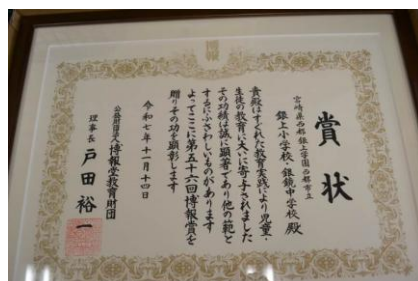 博報
賞状
宮崎県西都銀上学園西都市立
銀上小学校・銀鏡中学校 殿
貴殿はすぐれた教育実践により児童・
生徒の教育に大いに寄与されました
その功績は誠に顕著であり他の範と
するにふさわしいものがあります
よってここに第五十六回博報賞を
贈りその功を顕彰します
令和七年十一月十四日
公益財団法人博報堂教育財団
理事長 戸田裕一